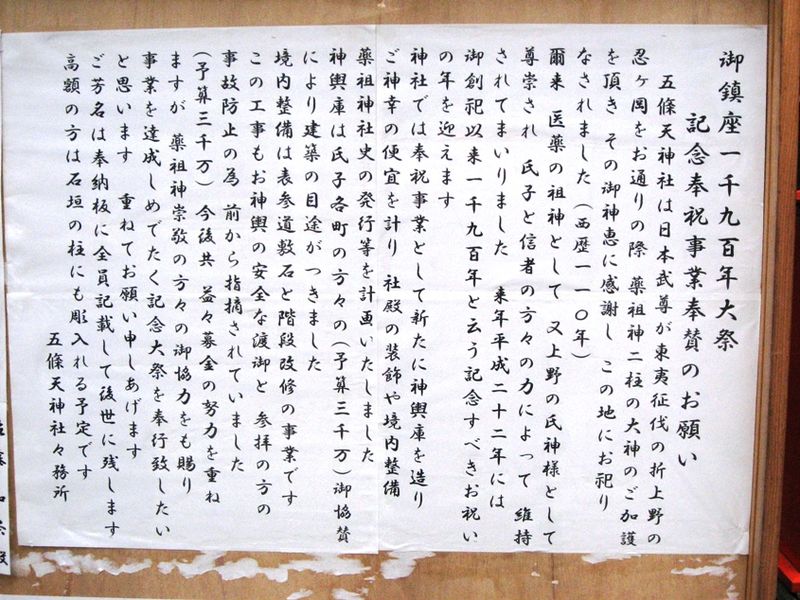 御鎮座一千九百年大祭
記念奉祝事業奉賛のお願い
五條天神社は日本武尊が東夷征伐の折上野の
忍ヶ岡をお通りの際 薬祖神二柱の大神のご加護
を頂き その御神恵に感謝し この地にお祀り
なされました(西歴一一〇年)
爾来 医薬の祖神として 又上野の氏神様として
尊崇され 氏子と信者の方々の力によって 維持
されてまいりました 来年平成二十二年には
御創祀以来一千九百年と云う記念すべきお祝い
の年を迎えます
神社では奉祝事業として新たに神輿庫を造り
ご神幸の便宜を計り 社殿の装飾や境内整備
薬祖神社史の発行等を計画いたしました
神輿庫は氏子各町の方々の(予算三千万)御協賛
により建築の目途がつきました
境内整備は表参道敷石と階段改修の事業です
この工事もお神輿の安全な渡御と 参拝の方の
事故防止の為 前から指摘されていました
(予算三千万) 今後共 益々募金の努力を重ね
ますが 薬祖神崇敬の方々の御協力をも賜り
事業を達成しめでたく記念大祭を奉行致したい
と思います 重ねてお願い申しあげます
ご芳名は奉納板に全員記載して後世に残します
高額の方は石垣の柱にも彫入れる予定です
五條天神社々務所